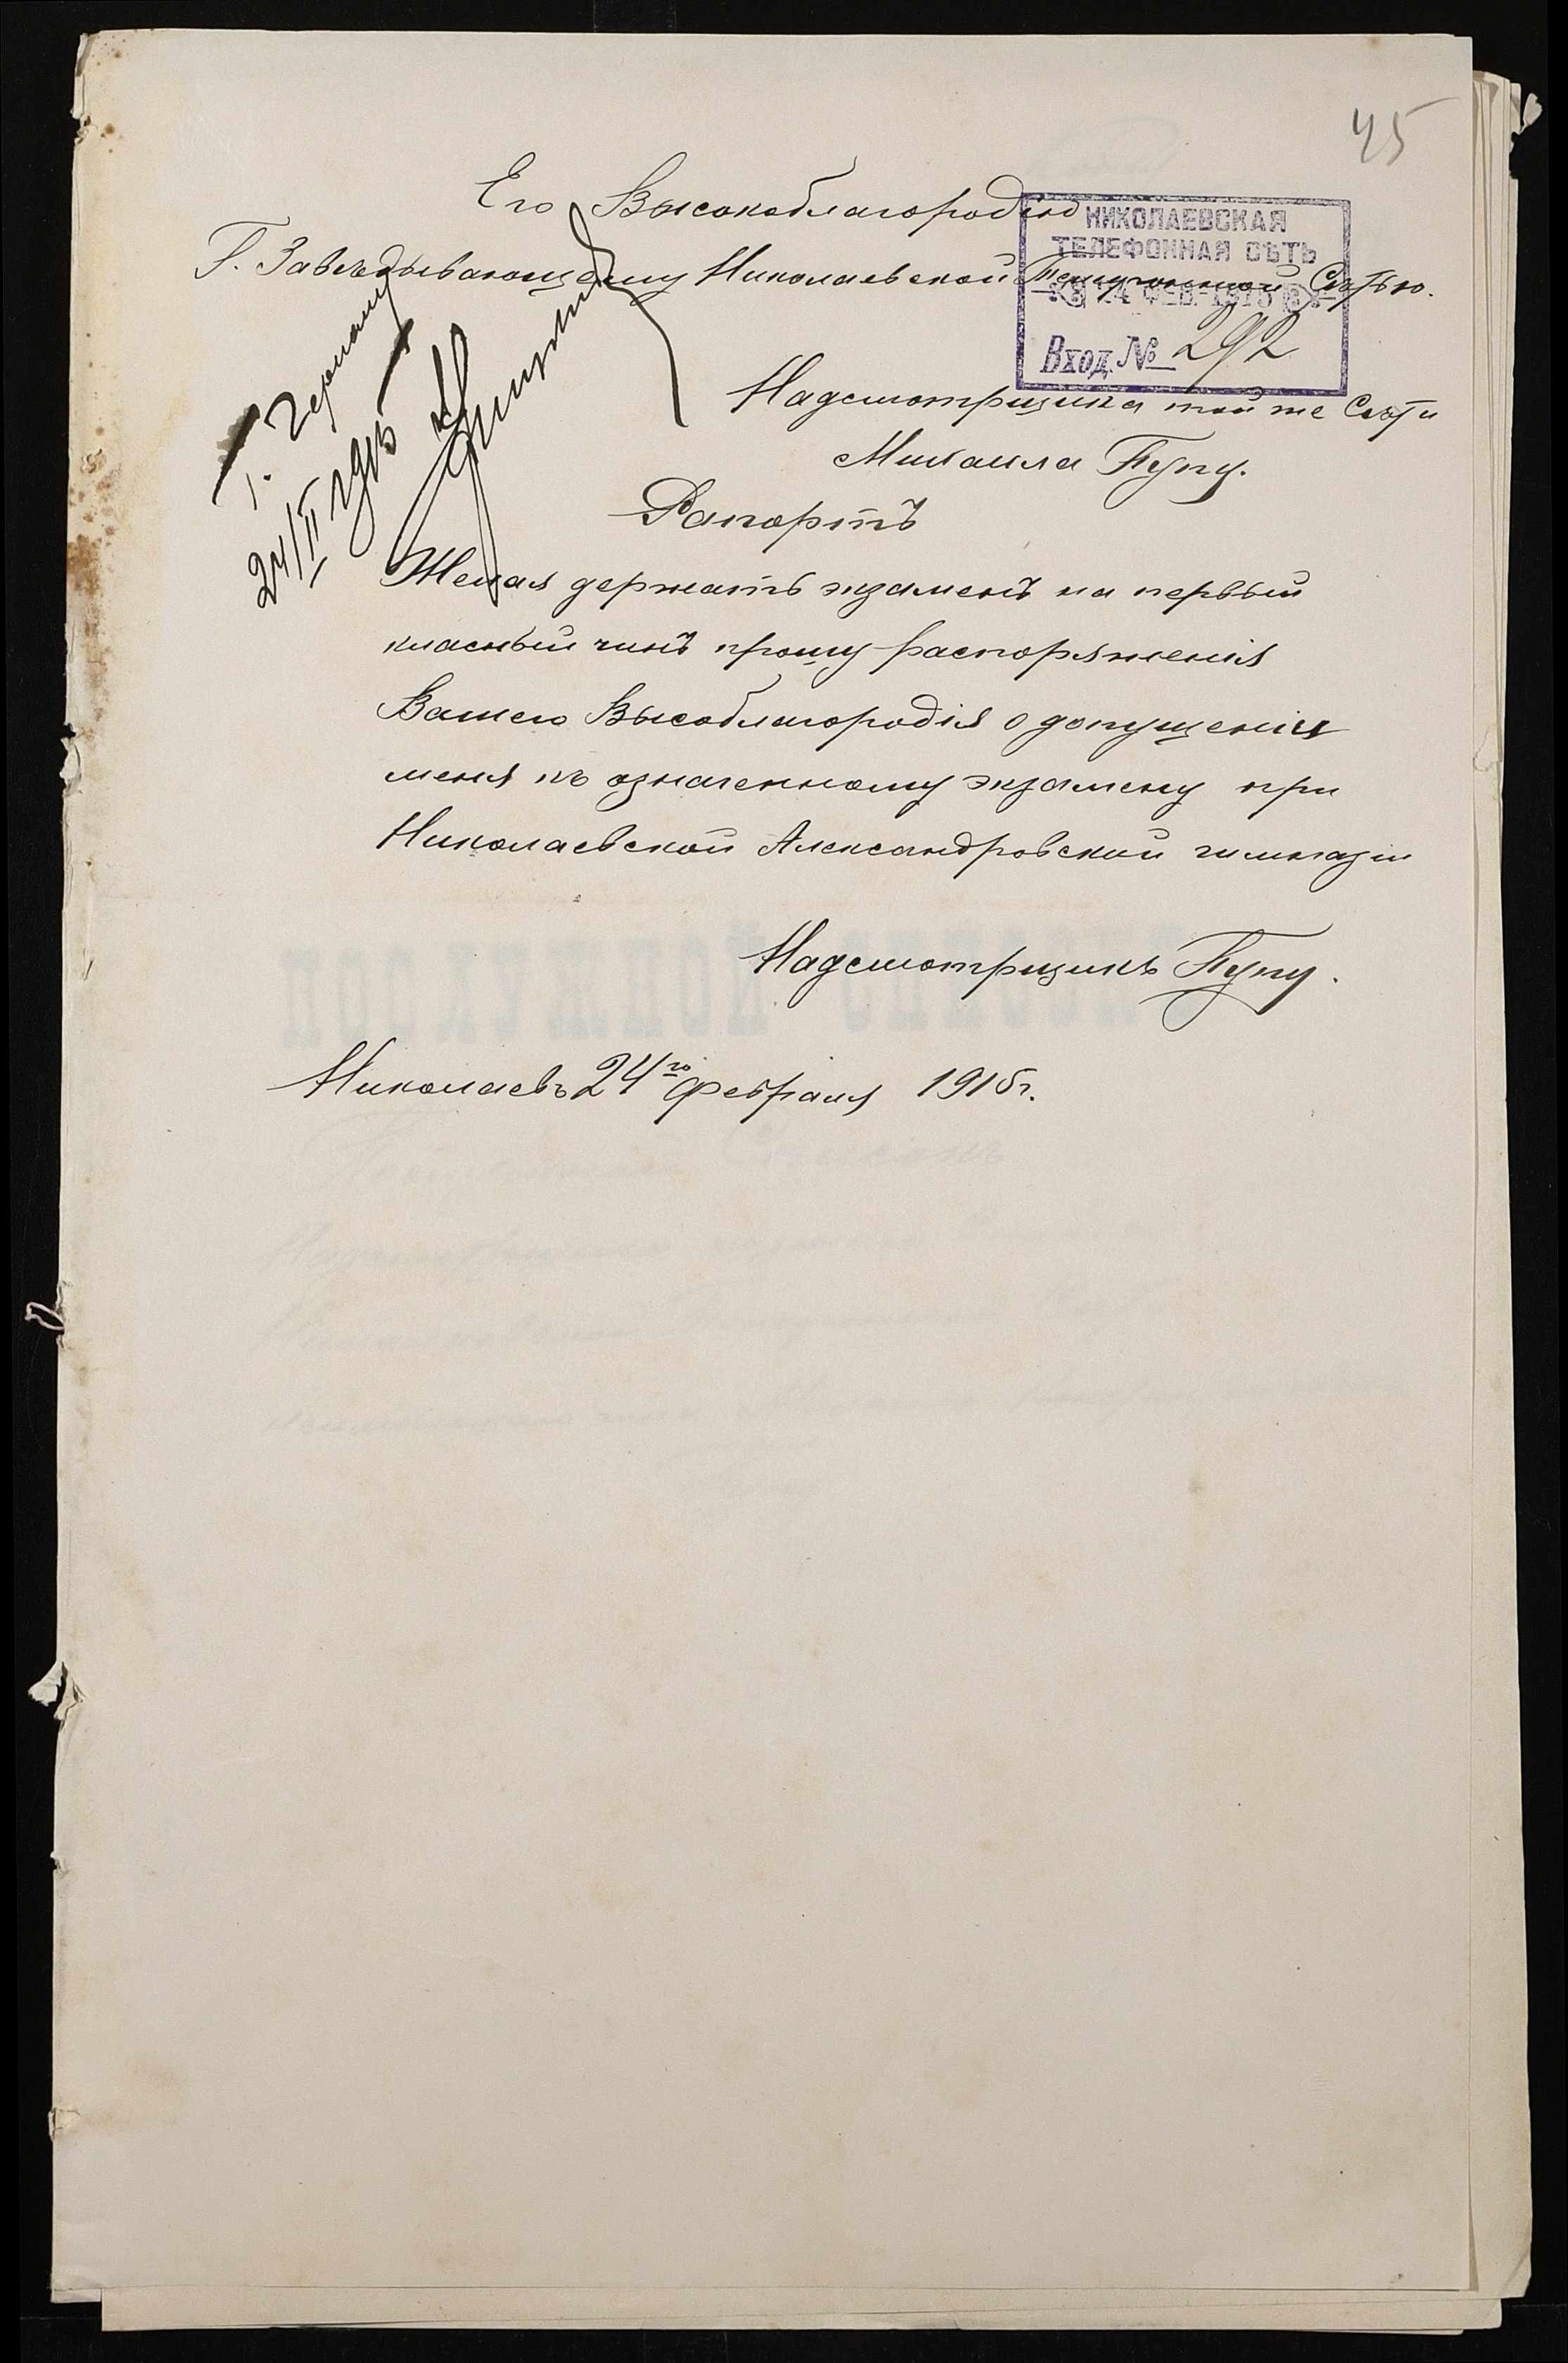 45
Его Высокоблагородію
Г. Завѣдывающему Николаевской Телефонной Сѣтью.
НИКОЛАЕВСКАЯ
ТЕЛЕФОННАЯ СѢТЬ
24 ФЕВ. 1915
Вход. № 292
Надсмотрщика той же Сѣти
Михаила Пупу.
Рапортъ
24/II
Желая держать экзаменъ на первый
класный чинъ прошу распоряженія
Вашего Высоблагородія о допущеніи
меня къ означенному экзамену при
Николаевской Александровской гимназіи
Надсмотрщикъ Пупу.
Николаевъ 24го Февраля 1915 г.
ПОСЛУЖНОЙ СПИСОКЪ